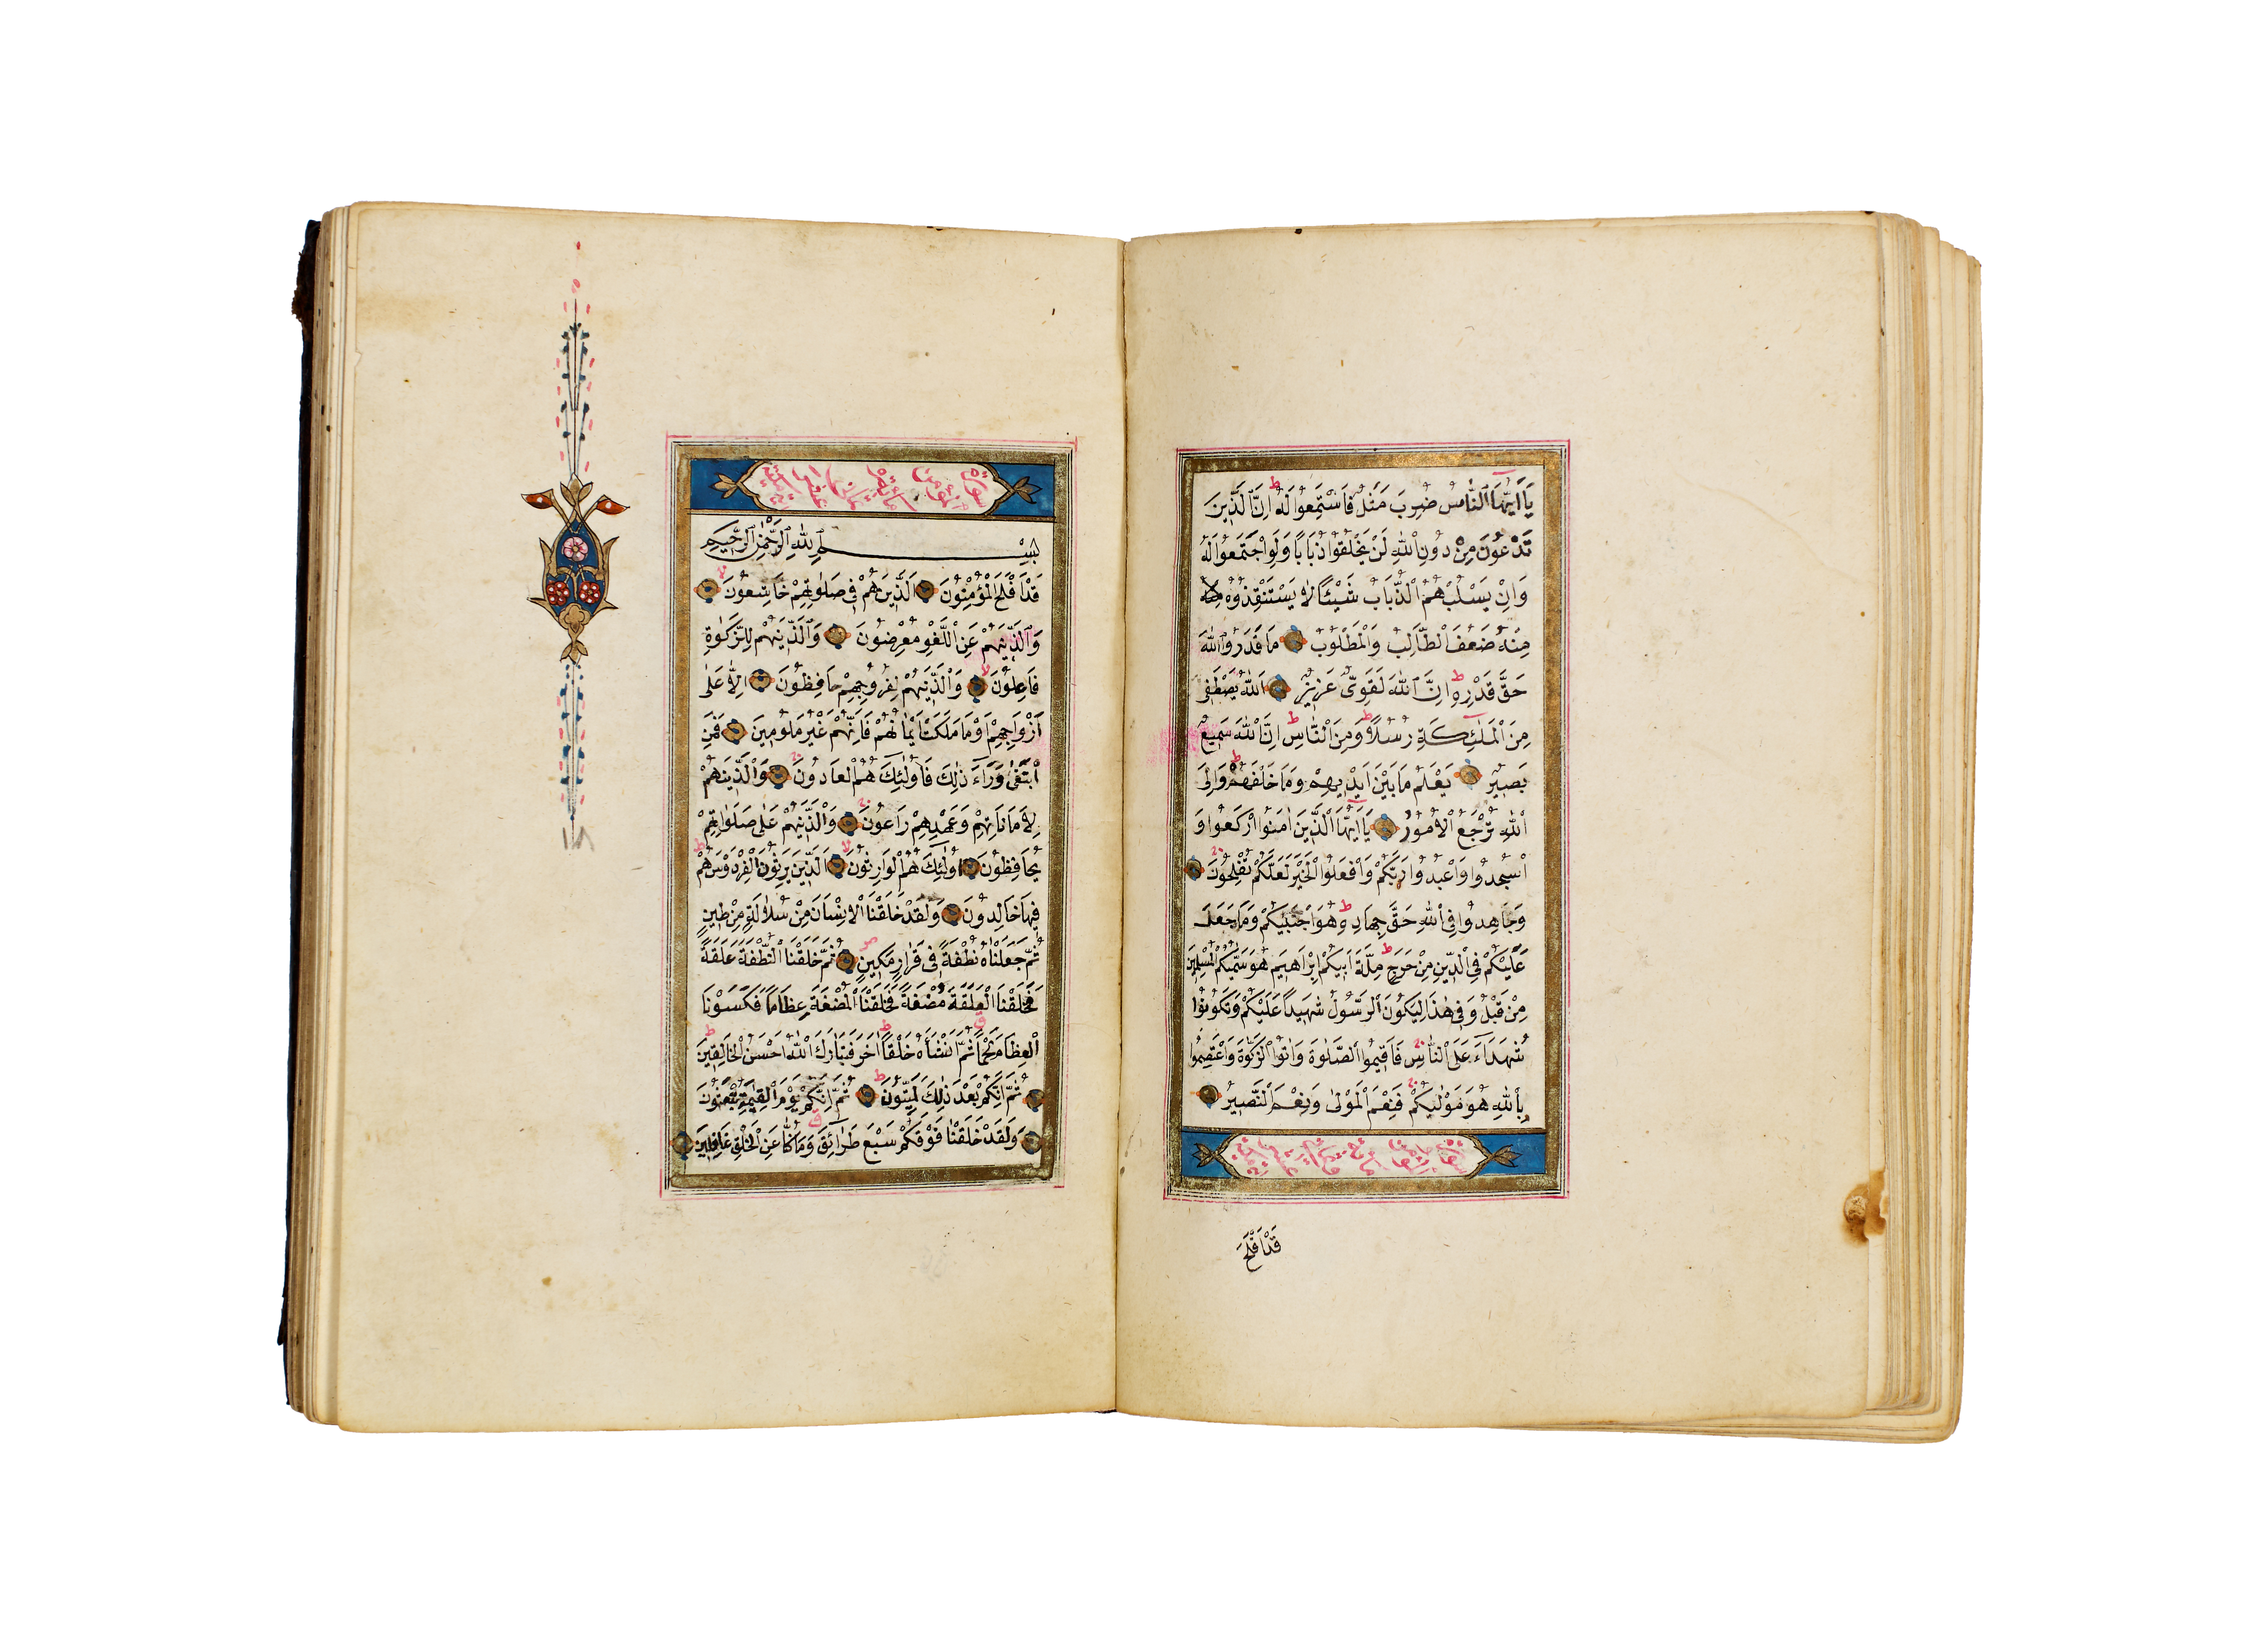 يَا اَيُّهَا النَّاسُ ضُرِبَ مَثَلٌ فَاسْتَمِعُوا لَهُ ط اِنَّ الَّذِينَ
تَدْعُونَ مِنْ دُونِ اللّٰهِ لَنْ يَخْلُقُوا ذُبَابًا وَلَوِ اجْتَمَعُوا لَهُ
وَاِنْ يَسْلُبْهُمُ الذُّبَابُ شَيْئًا لَا يَسْتَنْقِذُوهُ
مِنْهُ ضَعُفَ الطَّالِبُ وَالْمَطْلُوبُ مَا قَدَرُوا اللّٰهَ
حَقَّ قَدْرِهِ ط اِنَّ اللّٰهَ لَقَوِىٌّ عَزِيزٌ اَللّٰهُ يَصْطَفِى
مِنَ الْمَلٰئِكَةِ رُسُلًا وَمِنَ النَّاسِ ط اِنَّ اللّٰهَ سَمِيعٌ
بَصِيرٌ يَعْلَمُ مَا بَيْنَ اَيْدِيهِمْ وَمَا خَلْفَهُمْ ط وَاِلَى
اللّٰهِ تُرْجَعُ الْاُمُورُ يَا اَيُّهَا الَّذِينَ اٰمَنُوا ارْكَعُوا وَ
اسْجُدُوا وَاعْبُدُوا رَبَّكُمْ وَافْعَلُوا الْخَيْرَ لَعَلَّكُمْ تُفْلِحُونَ
وَجَاهِدُوا فِى اللّٰهِ حَقَّ جِهَادِهِ ط هُوَ اجْتَبٰيكُمْ وَمَا جَعَلَ
عَلَيْكُمْ فِى الدِّينِ مِنْ حَرَجٍ ط مِلَّةَ اَبِيكُمْ اِبْرَاهِيمَ هُوَ سَمّٰيكُمُ الْمُسْلِمِينَ
مِنْ قَبْلُ وَفِى هٰذَا لِيَكُونَ الرَّسُولُ شَهِيدًا عَلَيْكُمْ وَتَكُونُوا
شُهَدَاءَ عَلَى النَّاسِ فَاَقِيمُوا الصَّلٰوةَ وَاٰتُوا الزَّكٰوةَ وَاعْتَصِمُوا
بِاللّٰهِ هُوَ مَوْلٰيكُمْ فَنِعْمَ الْمَوْلٰى وَنِعْمَ النَّصِيرُ
قَدْ اَفْلَحَ
سورة المؤمنين
بِسْمِ اللّٰهِ الرَّحْمٰنِ الرَّحِيمِ
قَدْ اَفْلَحَ الْمُؤْمِنُونَ اَلَّذِينَ هُمْ فِى صَلٰوتِهِمْ خَاشِعُونَ لا
وَالَّذِينَ هُمْ عَنِ اللَّغْوِ مُعْرِضُونَ وَالَّذِينَ هُمْ لِلزَّكٰوةِ
فَاعِلُونَ ط وَالَّذِينَ هُمْ لِفُرُوجِهِمْ حَافِظُونَ اِلَّا عَلٰى
اَزْوَاجِهِمْ اَوْ مَا مَلَكَتْ اَيْمَانُهُمْ فَاِنَّهُمْ غَيْرُ مَلُومِينَ فَمَنِ
ابْتَغٰى وَرَاءَ ذٰلِكَ فَاُولٰئِكَ هُمُ الْعَادُونَ وَالَّذِينَ هُمْ
لِاَمَانَاتِهِمْ وَعَهْدِهِمْ رَاعُونَ وَالَّذِينَ هُمْ عَلٰى صَلَوَاتِهِمْ
يُحَافِظُونَ اُولٰئِكَ هُمُ الْوَارِثُونَ لا اَلَّذِينَ يَرِثُونَ الْفِرْدَوْسَ ط هُمْ
فِيهَا خَالِدُونَ وَلَقَدْ خَلَقْنَا الْاِنْسَانَ مِنْ سُلَالَةٍ مِنْ طِينٍ
ثُمَّ جَعَلْنَاهُ نُطْفَةً فِى قَرَارٍ مَكِينٍ ص ثُمَّ خَلَقْنَا النُّطْفَةَ عَلَقَةً
فَخَلَقْنَا الْعَلَقَةَ مُضْغَةً فَخَلَقْنَا الْمُضْغَةَ عِظَامًا فَكَسَوْنَا
الْعِظَامَ لَحْمًا ثُمَّ اَنْشَأْنَاهُ خَلْقًا اٰخَرَ فَتَبَارَكَ اللّٰهُ اَحْسَنُ الْخَالِقِينَ ط
ثُمَّ اِنَّكُمْ بَعْدَ ذٰلِكَ لَمَيِّتُونَ ط ثُمَّ اِنَّكُمْ يَوْمَ الْقِيٰمَةِ تُبْعَثُونَ
وَلَقَدْ خَلَقْنَا فَوْقَكُمْ سَبْعَ طَرَائِقَ وَمَا كُنَّا عَنِ الْخَلْقِ غَافِلِينَ
١٨